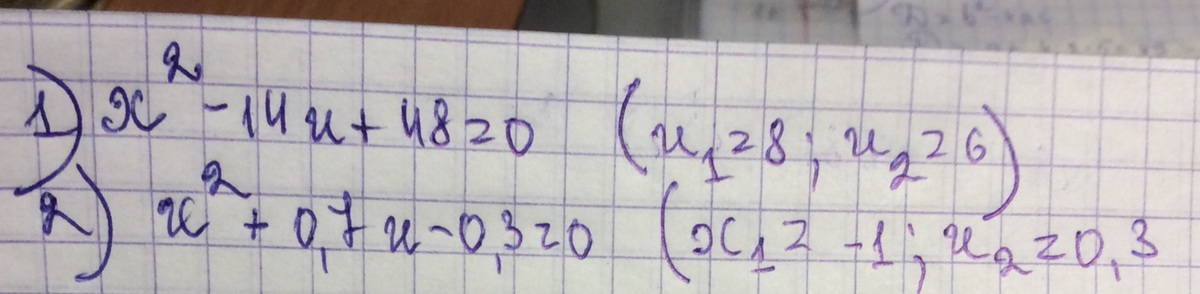 1) x² - 14x + 48 = 0 (x₁ = 8; x₂ = 6)
2) x² + 0,7x - 0,3 = 0 (x₁ = -1; x₂ = 0,3